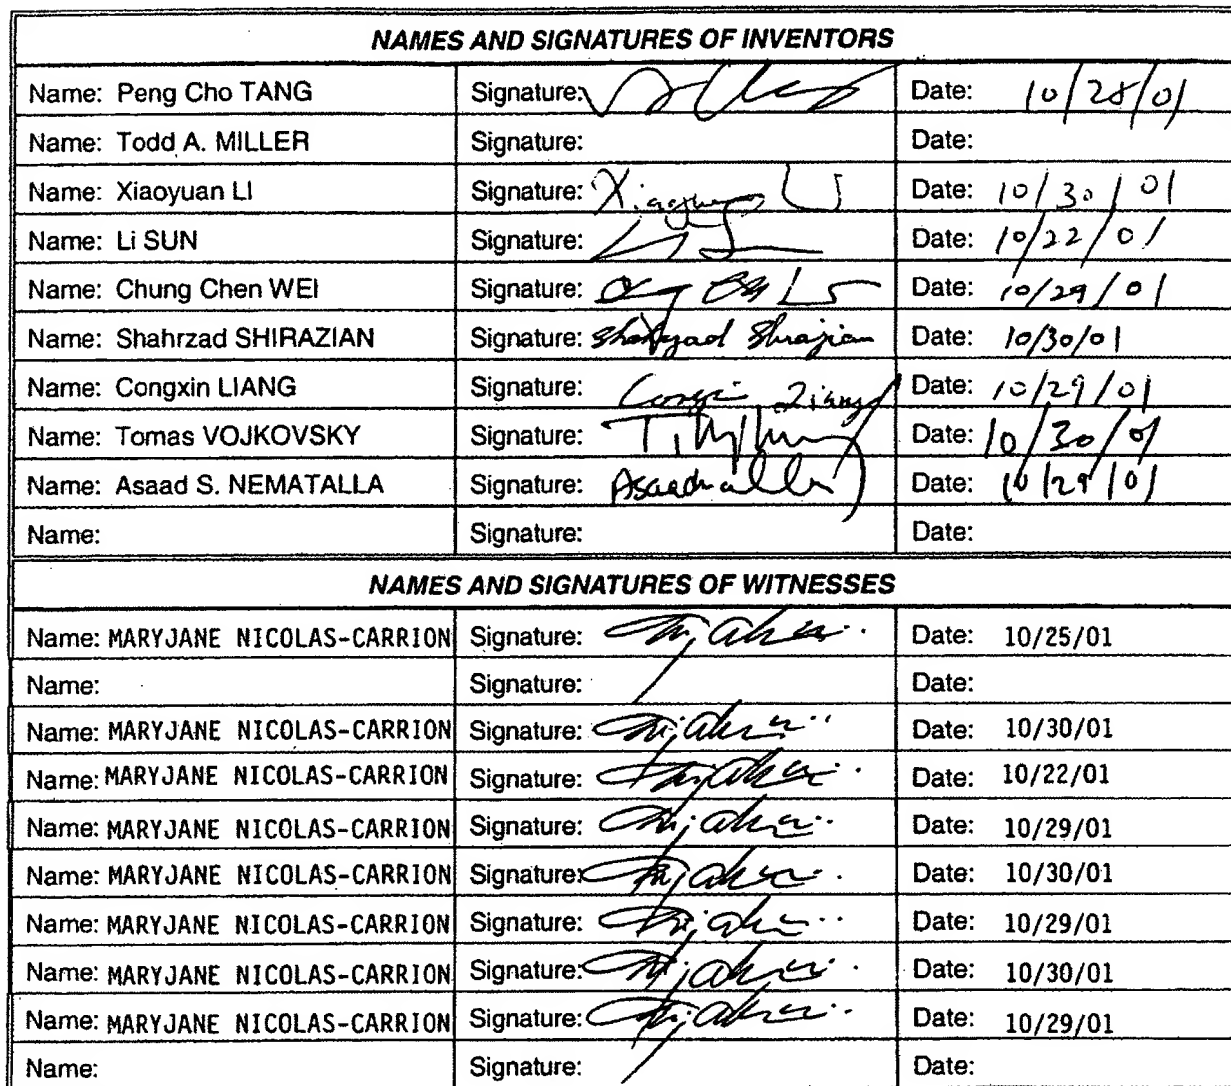 NAMES AND SIGNATURES OF INVENTORS
Name: Peng Cho TANG Signature: Date: 10/28/01
Name: Todd A. MILLER Signature: Date:
Name: Xiaoyuan LI Signature: Date: 10/30/01
Name: Li SUN Signature: Date: 10/22/01
Name: Chung Chen WEI Signature: Date: 10/29/01
Name: Shahrzad SHIRAZIAN Signature: Date: 10/30/01
Name: Congxin LIANG Signature: Date: 10/29/01
Name: Tomas VOJKOVSKY Signature: Date: 10/30/01
Name: Asaad S. NEMATALLA Signature: Date: 10/29/01
Name: Signature: Date:
NAMES AND SIGNATURES OF WITNESSES
Name: MARYJANE NICOLAS-CARRION Signature: Date: 10/25/01
Name: Signature: Date:
Name: MARYJANE NICOLAS-CARRION Signature: Date: 10/30/01
Name: MARYJANE NICOLAS-CARRION Signature: Date: 10/22/01
Name: MARYJANE NICOLAS-CARRION Signature: Date: 10/29/01
Name: MARYJANE NICOLAS-CARRION Signature: Date: 10/30/01
Name: MARYJANE NICOLAS-CARRION Signature: Date: 10/29/01
Name: MARYJANE NICOLAS-CARRION Signature: Date: 10/30/01
Name: MARYJANE NICOLAS-CARRION Signature: Date: 10/29/01
Name: Signature: Date: